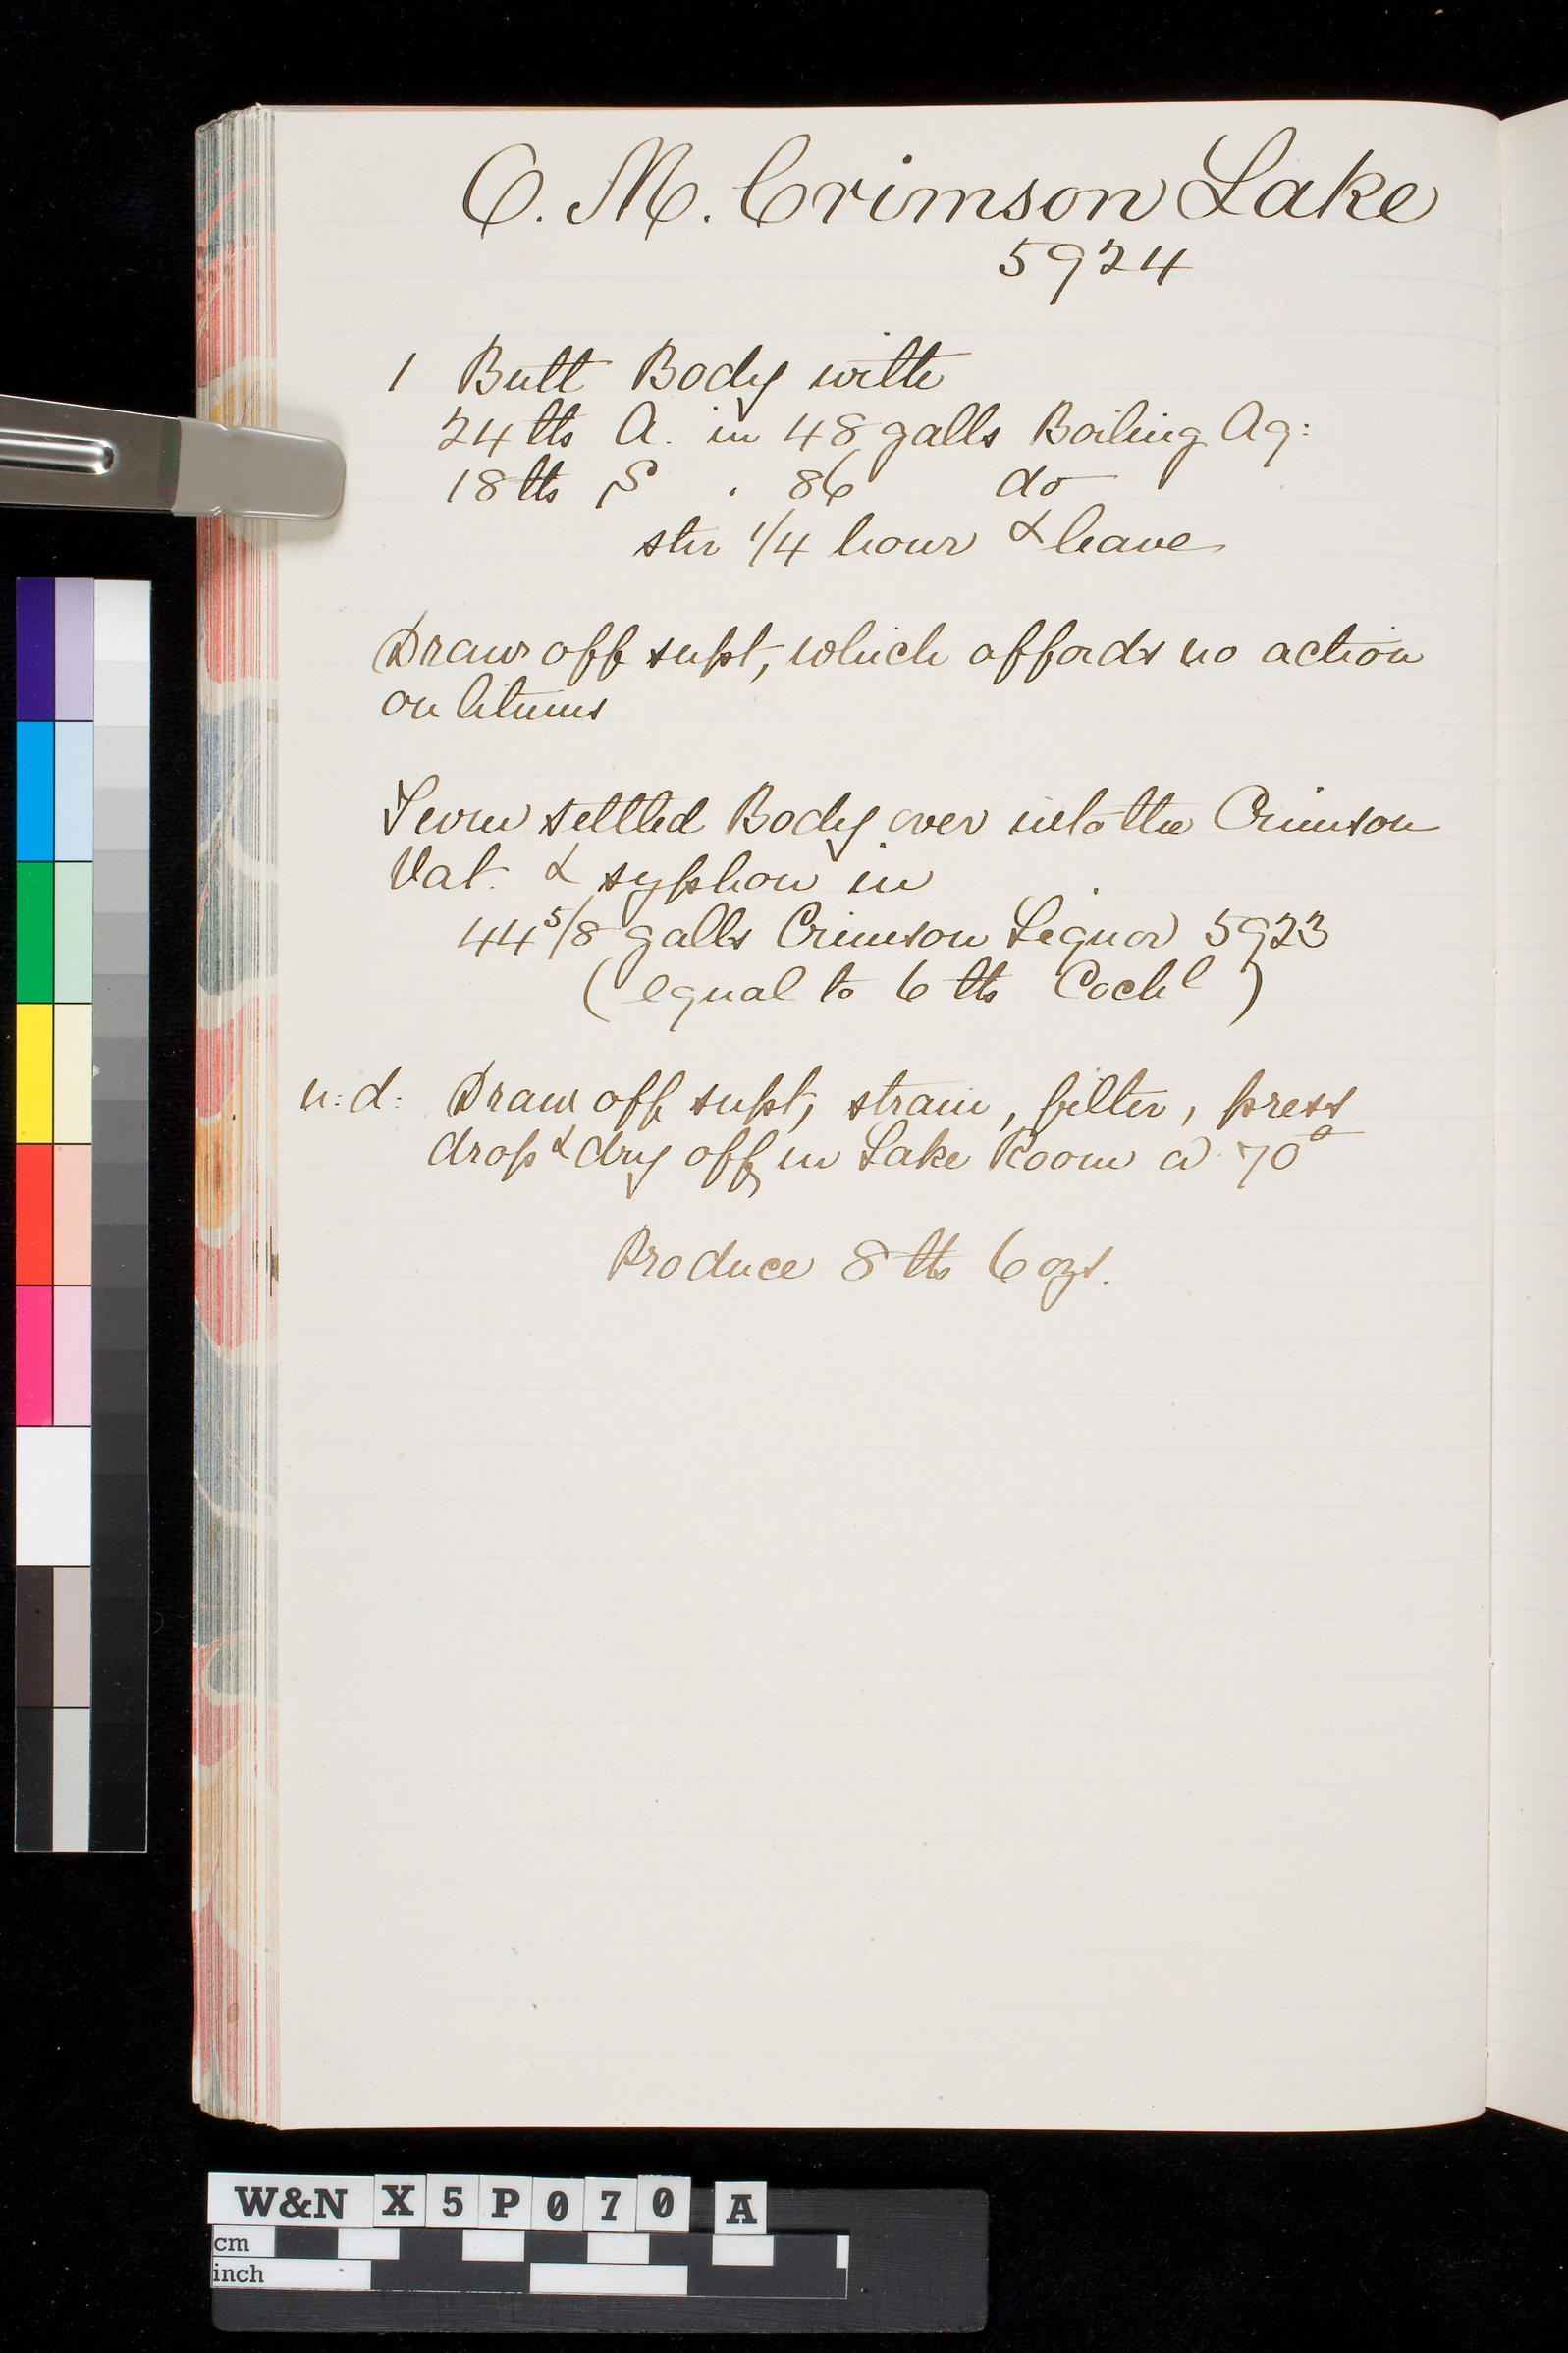 C. M. Crimson Lake
5924
1 Butt Body with
24 lbs A. in 48 galls Boiling Aq:
18 lbs S . 86 do
stir 1/4 hour & leave
Draw off supt, which affords no action
on litmus
Turn settled Body over into the Crimson
Vat. & syphon in
44 5/8 galls Crimson Liquor 5923
(equal to 6 lbs Cochl)
n: d: Draw off supt, strain, filter, press
drop & dry off in Lake Room a 70°
Produce 8 lbs 6 ozs.
W&N X5P070 A
cm
inch